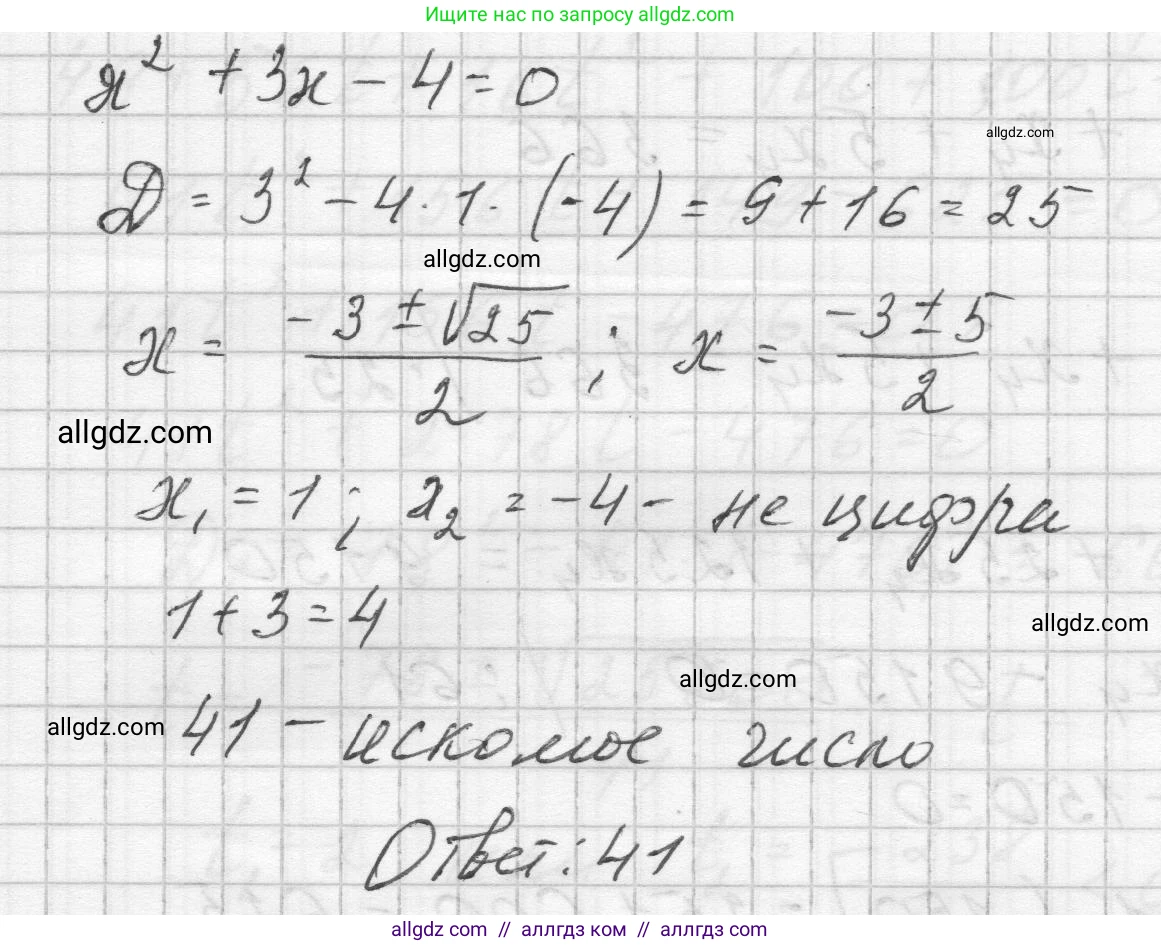 Ищите нас по запросу allgdz.com
x² + 3x - 4 = 0
allgdz.com
Д = 3² - 4 · 1 · (-4) = 9 + 16 = 25
allgdz.com
x = (-3 ± √25)/2 ; x = (-3 ± 5)/2
allgdz.com
x₁ = 1 ; x₂ = -4 - не цифра
1 + 3 = 4
allgdz.com
allgdz.com
allgdz.com
41 - искомое число
Ответ: 41
allgdz.com // аллгдз ком // аллгдз com